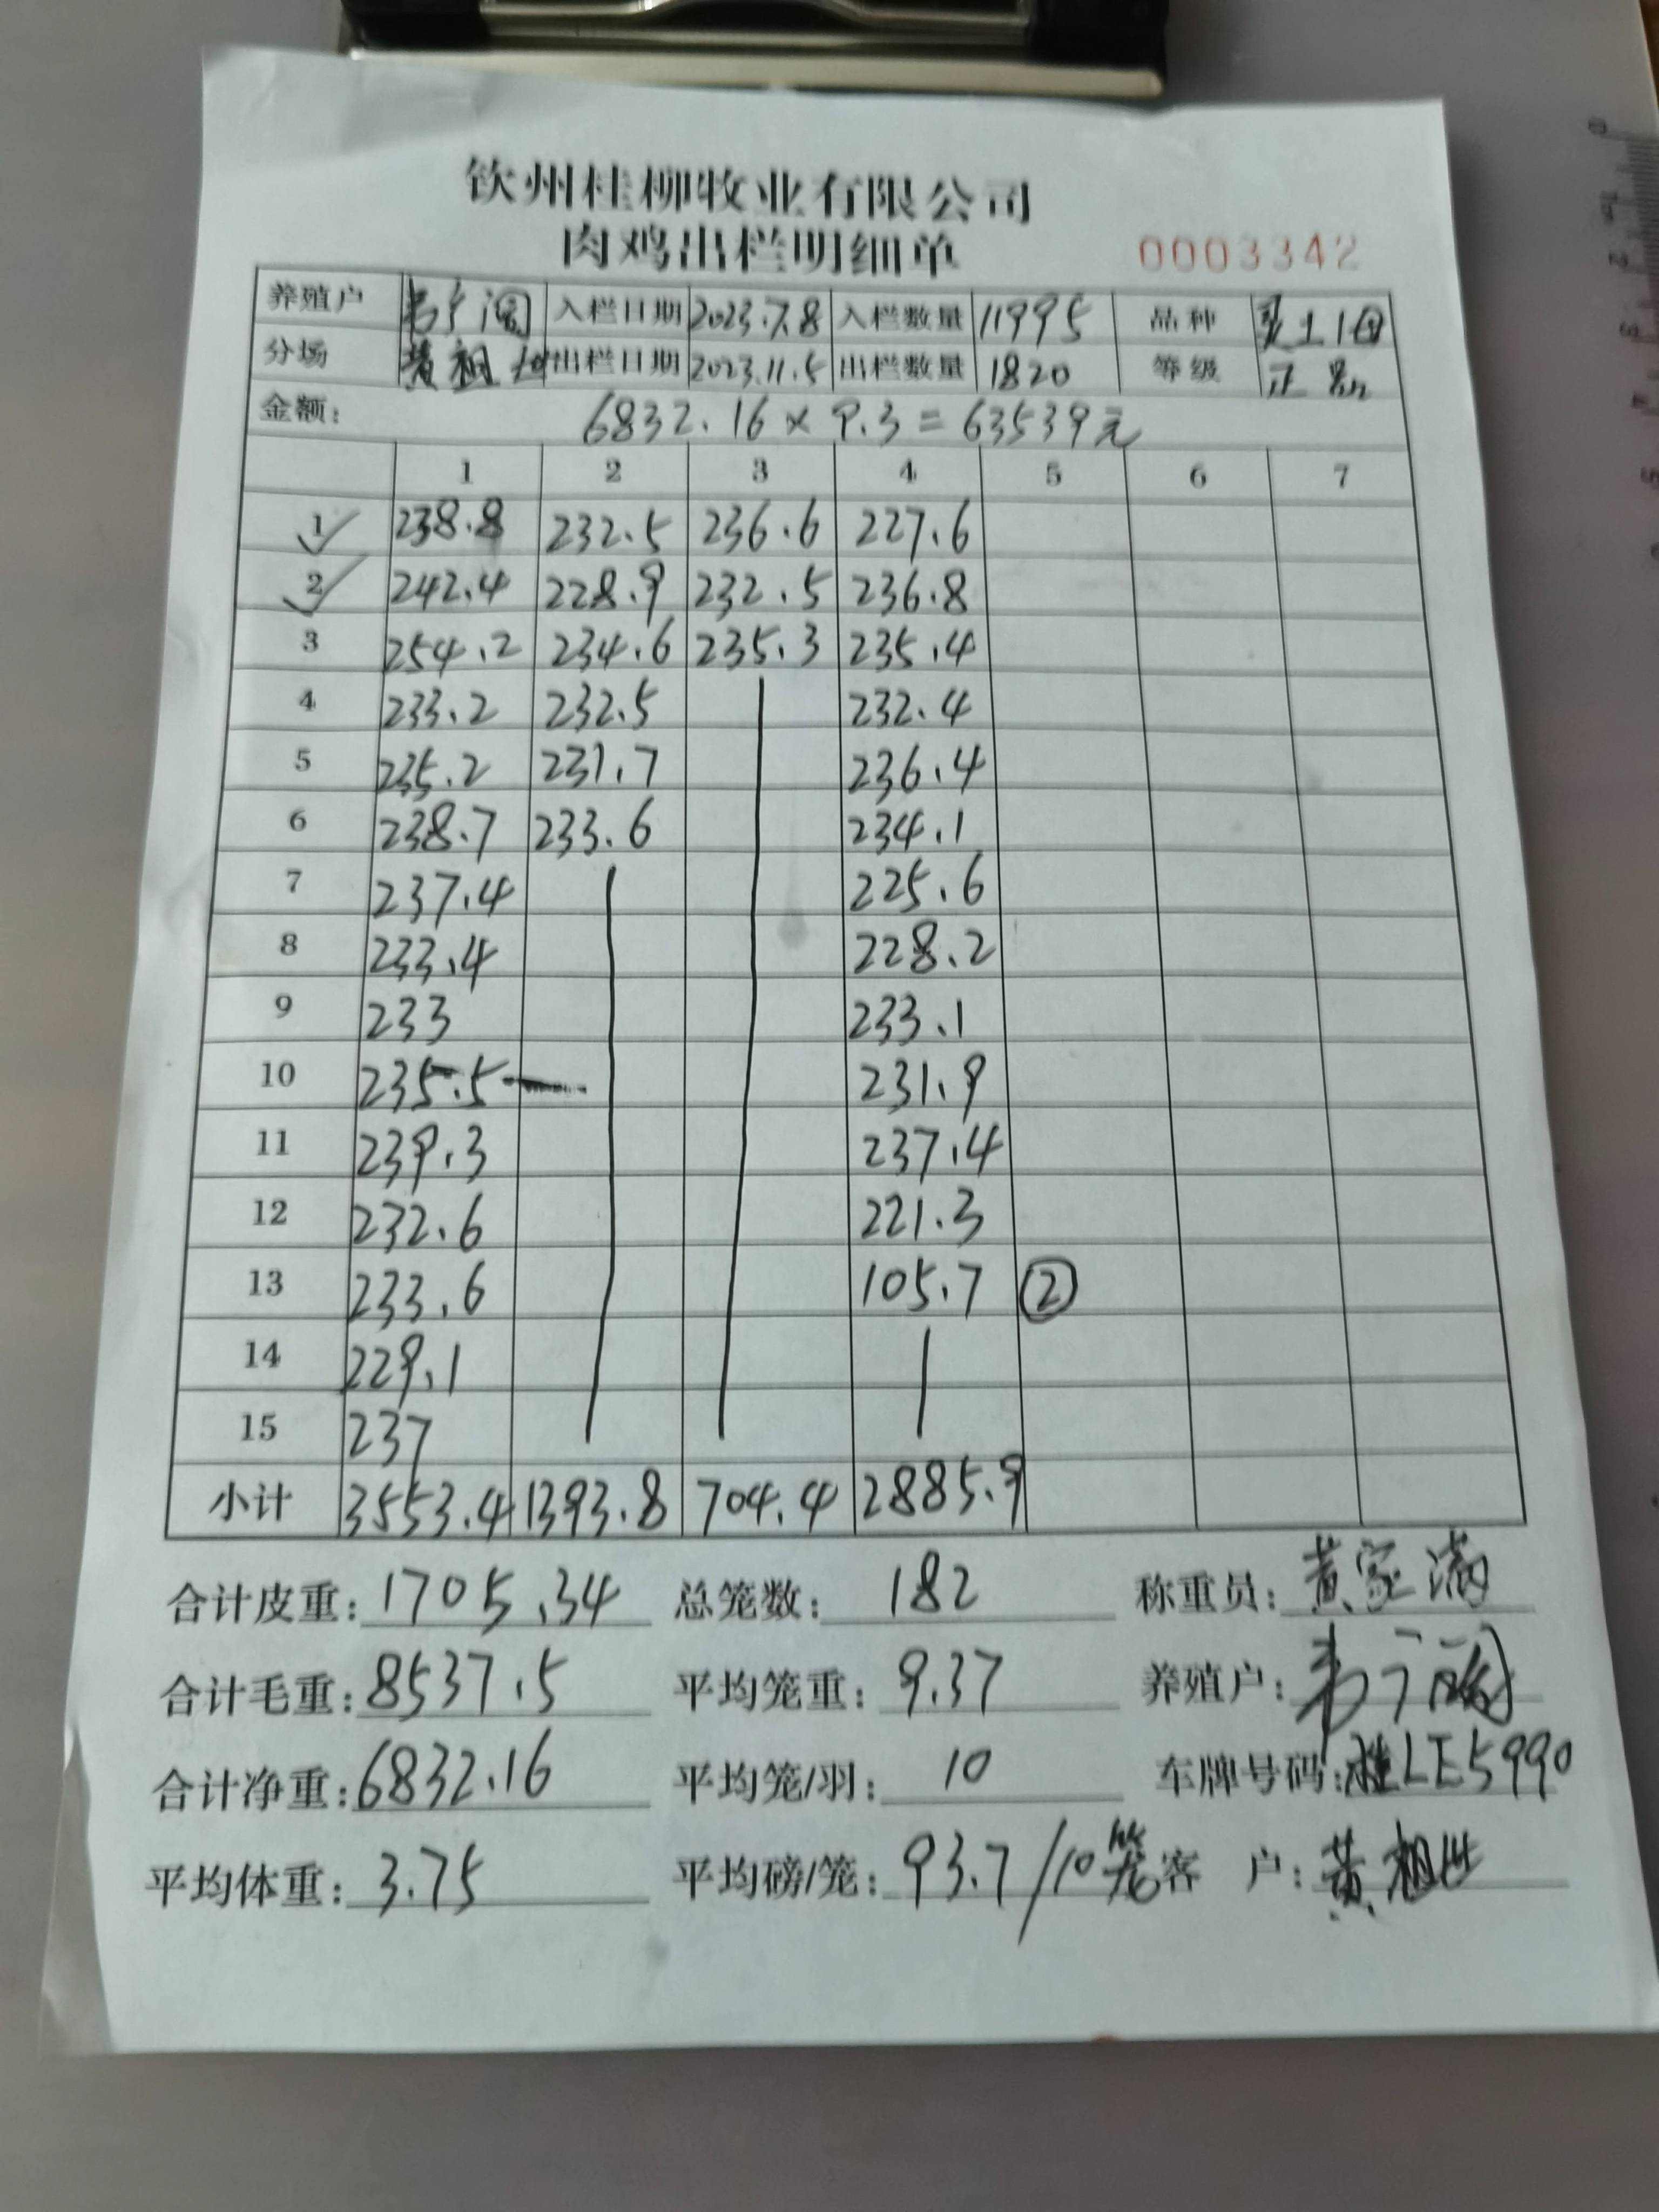 钦州桂柳牧业有限公司
肉鸡出栏明细单 0003342
养殖户 韦广 入栏日期 2023.7.8 入栏数量 11995 品种 土
分场 黄祖 出栏日期 2023.11.5 出栏数量 1820 等级 正品
金额: 6832.16 × 9.3 = 63539元
1 2 3 4 5 6 7
1 ✓ 238.8 232.5 236.6 227.6
2 ✓ 242.4 228.9 232.5 236.8
3 254.2 234.6 235.3 235.4
4 233.2 232.5 232.4
5 235.2 231.7 236.4
6 238.7 233.6 234.1
7 237.4 225.6
8 233.4 228.2
9 233 233.1
10 235.5 231.9
11 239.3 237.4
12 232.6 221.3
13 233.6 105.7 ②
14 229.1
15 237
小计 3553.4 1393.8 704.4 2885.9
合计皮重: 1705.34 总笼数: 182 称重员: 黄家满
合计毛重: 8537.5 平均笼重: 9.37 养殖户: 韦广
合计净重: 6832.16 平均笼/羽: 10 车牌号码: 桂LE5990
平均体重: 3.75 平均磅/笼: 93.7/10笼 客 户: 黄祖